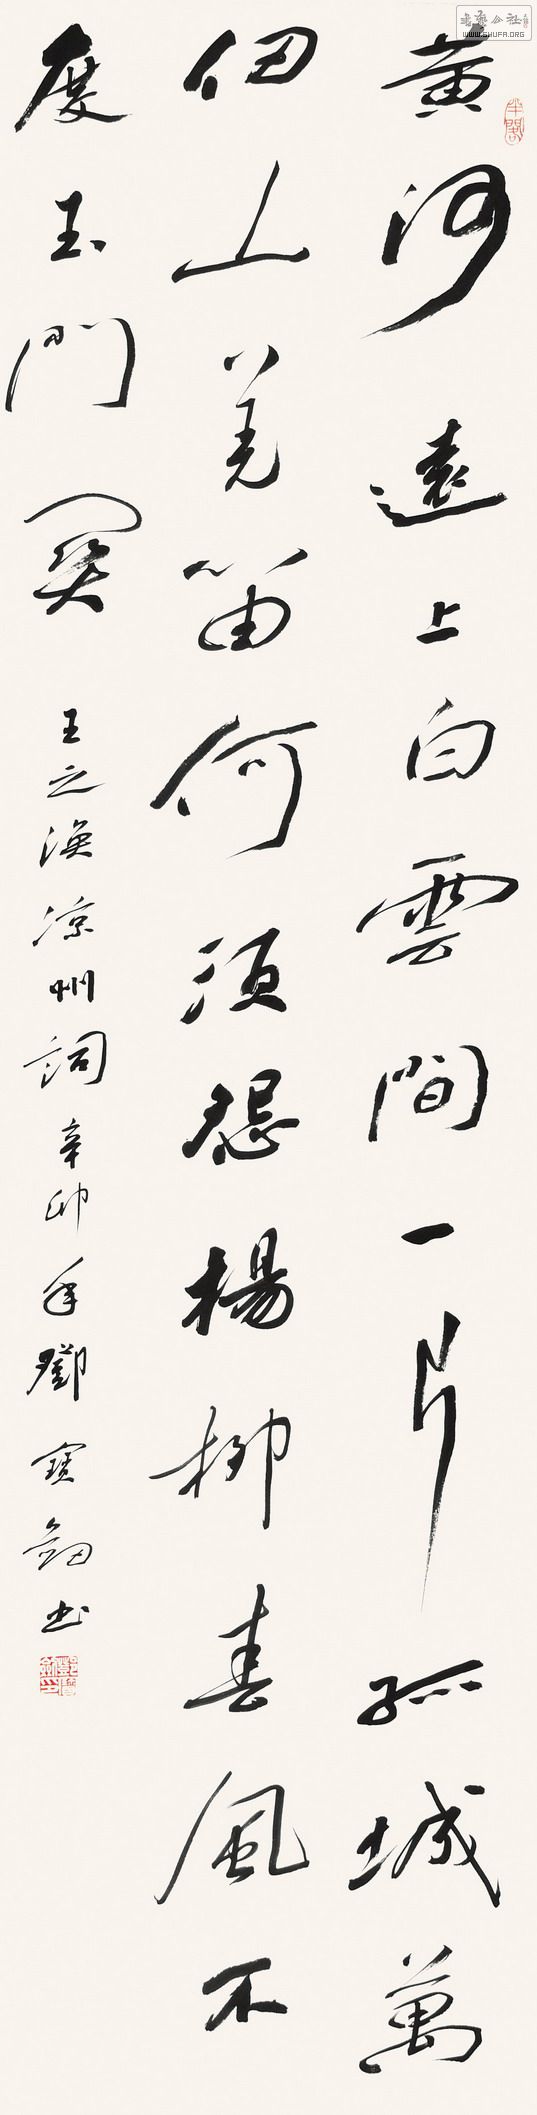 黄河遠上白雲間一片孤城萬
仞山羌笛何須怨楊柳春風不
度玉門関 王之渙凉州詞 辛卯年鄧寶劍書
WWW.SHUFA.ORG